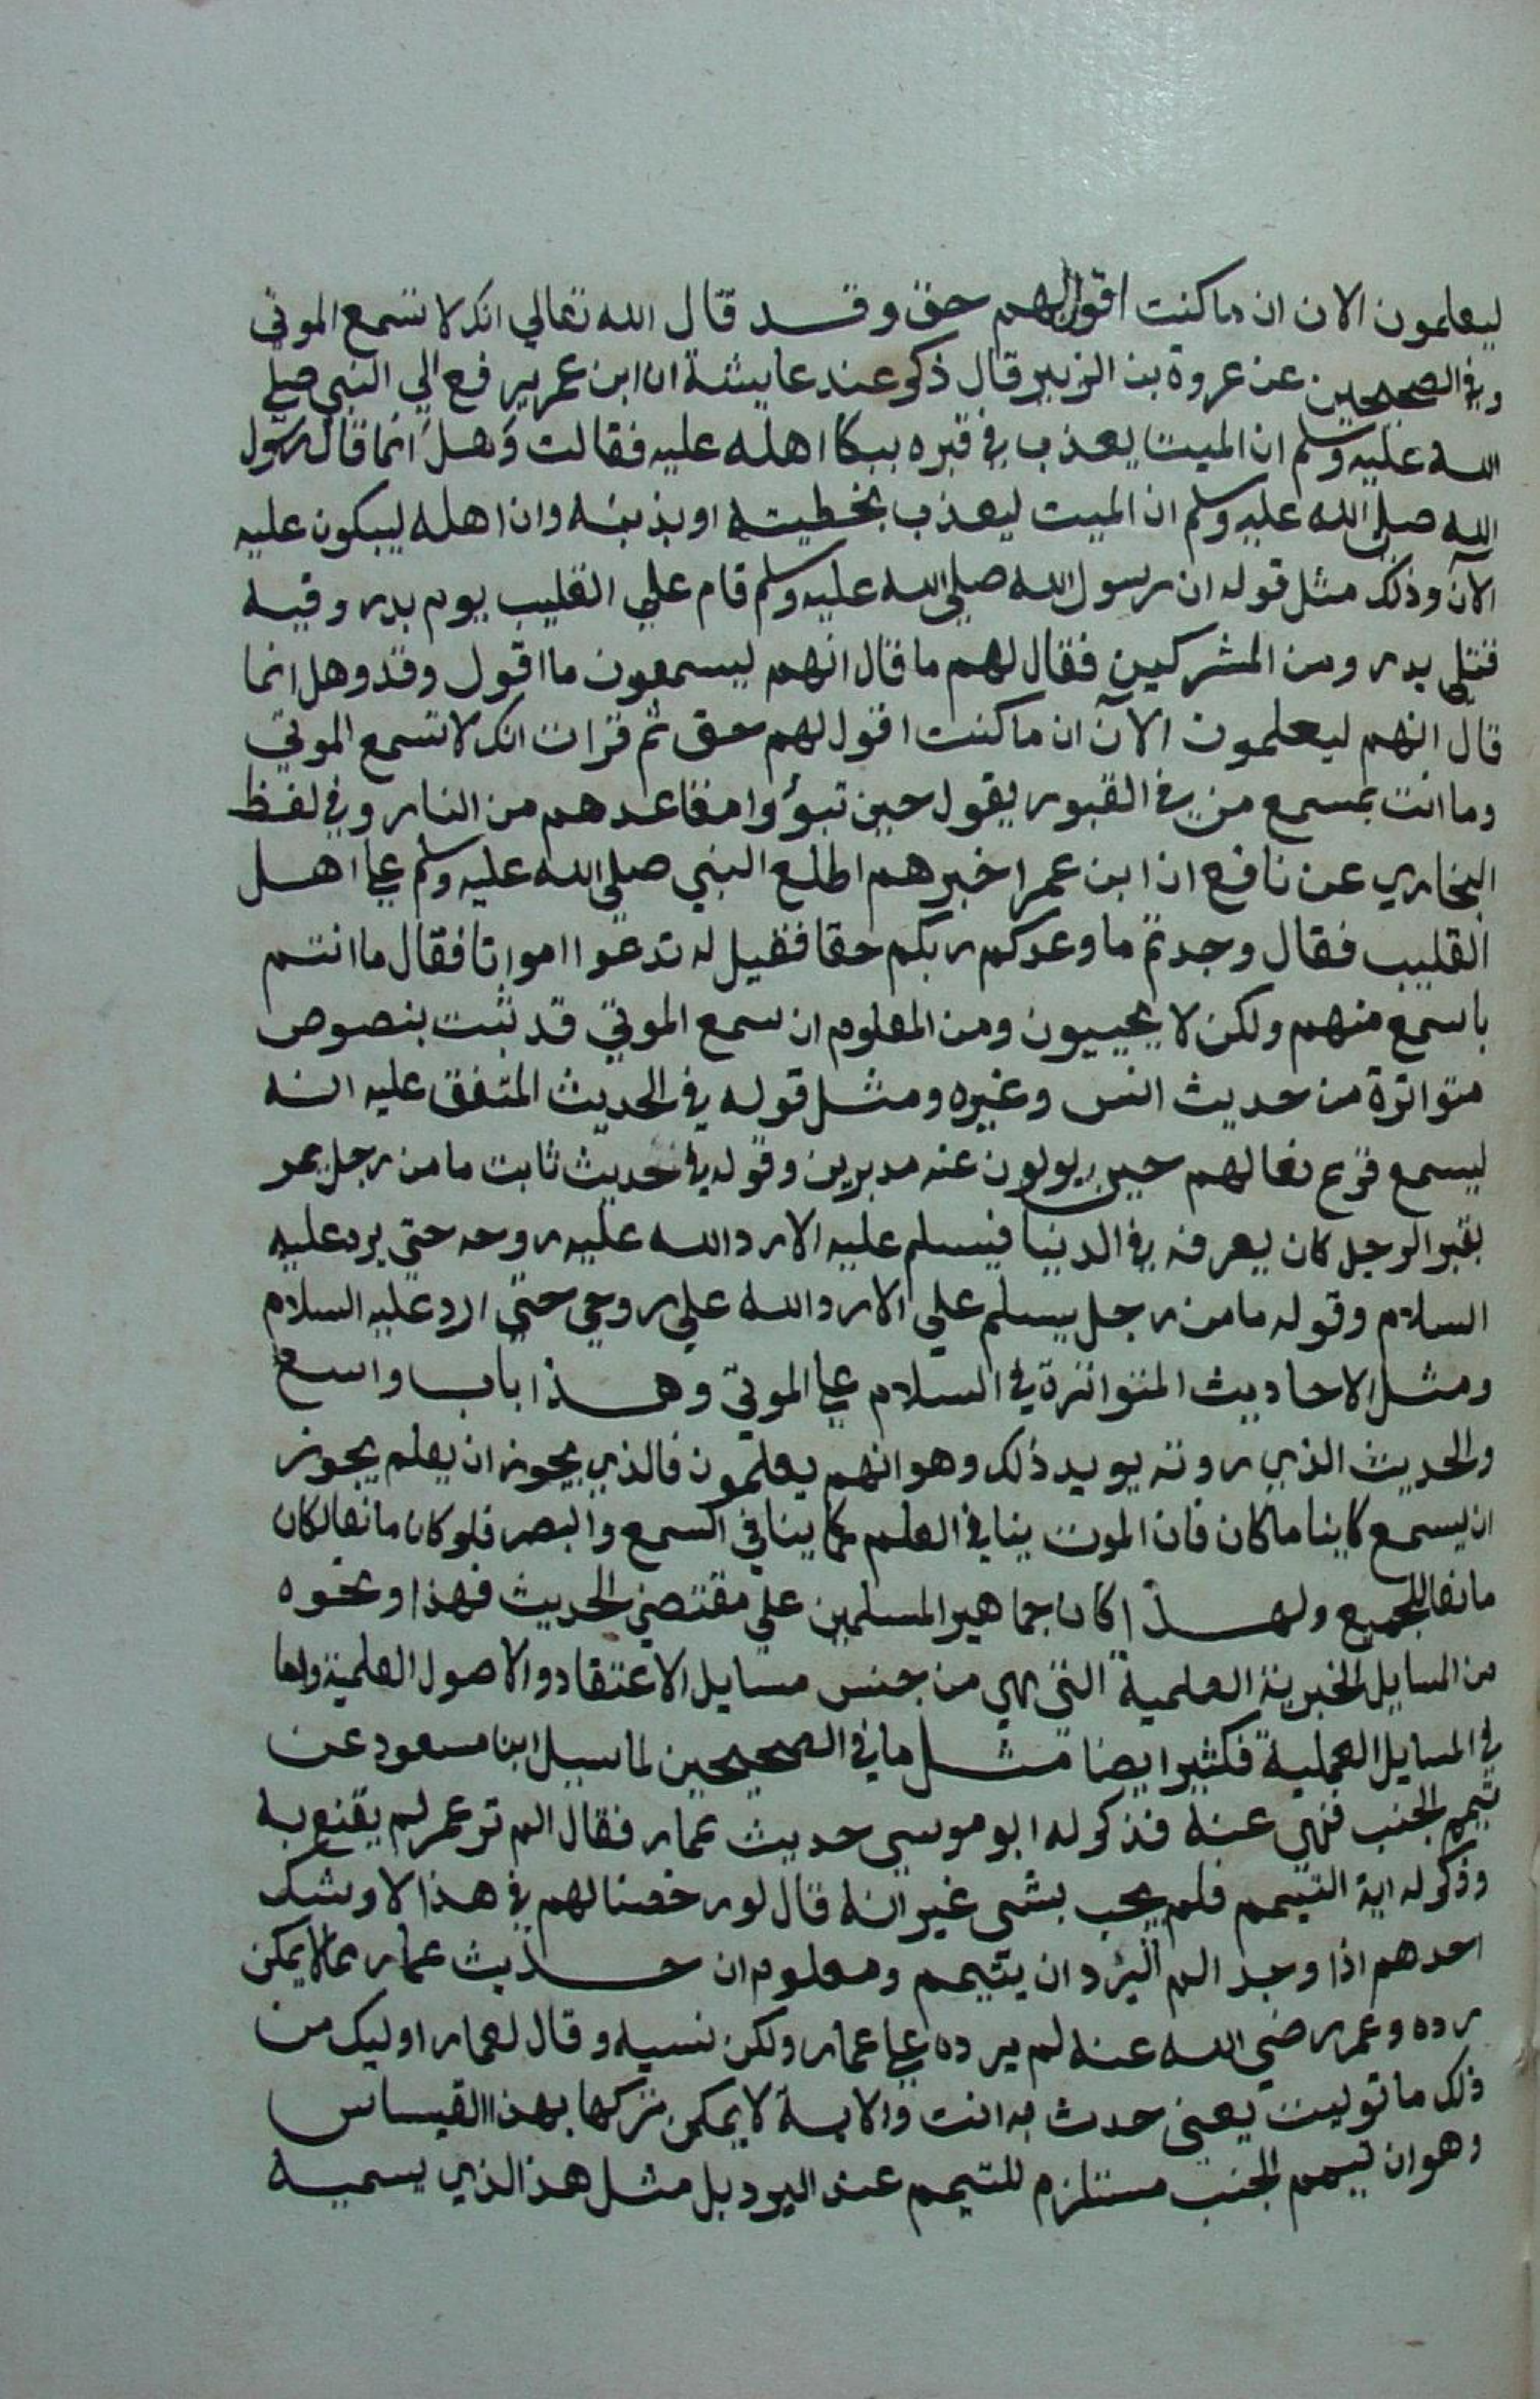 ليعلمون الان ان ما كنت اقول لهم حق وقد قال الله تعالي انك لا تسمع الموتي
وفي الصحيحين عن عروة بن الزبير قال ذكر عند عايشة ان ابن عمر يرفع الي النبي صلي
الله عليه وسلم ان الميت يعذب في قبره ببكا اهله عليه فقالت وهل انما قال رسول
الله صلي الله عليه وسلم ان الميت ليعذب بخطيته او بذنبه وان اهله ليبكون عليه
الآن وذلك مثل قوله ان رسول الله صلي الله عليه وسلم قام علي القليب يوم بدر وفيه
قتلي بدر ومن المشركين فقال لهم ما قال انهم ليسمعون ما اقول وقد وهل انما
قال انهم ليعلمون الآن ان ما كنت اقول لهم حق ثم قرات انك لا تسمع الموتي
وما انت بمسمع من في القبور يقول حين تبوؤا مقاعدهم من النار وفي لفظ
البخاري عن نافع ان ابن عمر اخبرهم اطلع النبي صلي الله عليه وسلم علي اهل
القليب فقال وجدتم ما وعدكم ربكم حقا فقيل له تدعوا امواتا فقال ما انتم
باسمع منهم ولكن لا يجيبون ومن المعلوم ان سمع الموتي قد ثبت بنصوص
متواترة من حديث انس وغيره ومثل قوله في الحديث المتفق عليه انه
ليسمع قرع نعالهم حين يولون عنه مدبرين وقوله في حديث ثابت ما من رجل يمر
بقبر الرجل كان يعرفه في الدنيا فيسلم عليه الا رد الله عليه روحه حتي يرد عليه
السلام وقوله ما من رجل يسلم علي الا رد الله علي روحي حتي ارد عليه السلام
ومثل الاحاديث المتواترة في السلام علي الموتي وهذا باب واسع
والحديث الذي روته يويد ذلك وهو انهم يعلمون فالذي يجوز ان يعلم يجوز
ان يسمع كاينا ما كان فان الموت ينافي العلم كما ينافي السمع والبصر فلو كان مانعا لكان
مانعا للجميع ولهذا كان جماهير المسلمين علي مقتضي الحديث فهذا ونحوه
من المسايل الخبرية العلمية التي هي من جنس مسايل الاعتقاد والاصول العلمية واما
في المسايل العملية فكثير ايضا مثل ما في الصحيحين لما سيل ابن مسعود عن
تيمم الجنب فنهي عنه فذكر له ابو موسي حديث عمار فقال الم تر عمر لم يقنع به
وذكر له اية التيمم فلم يجب بشي غير انه قال لو رخصنا لهم في هذا لاوشك
احدهم اذا وجد الم البرد ان يتيمم ومعلوم ان حديث عمار مما لا يمكن
رده وعمر رضي الله عنه لم يرده علي عمار ولكن نسيه وقال لعمار اوليك من
ذلك ما توليت يعني حدث به انت والاية لا يمكن تركها بهذا القياس
وهو ان تيمم الجنب مستلزم للتيمم عند البرد بل مثل هذ الذي يسميه